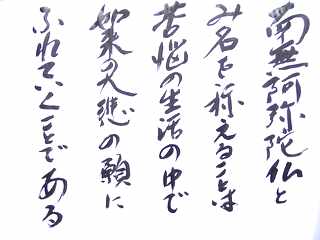 南無阿弥陀仏と
み名を称えることは
苦悩の生活の中で
如来の大悲の願に
ふれていくことである